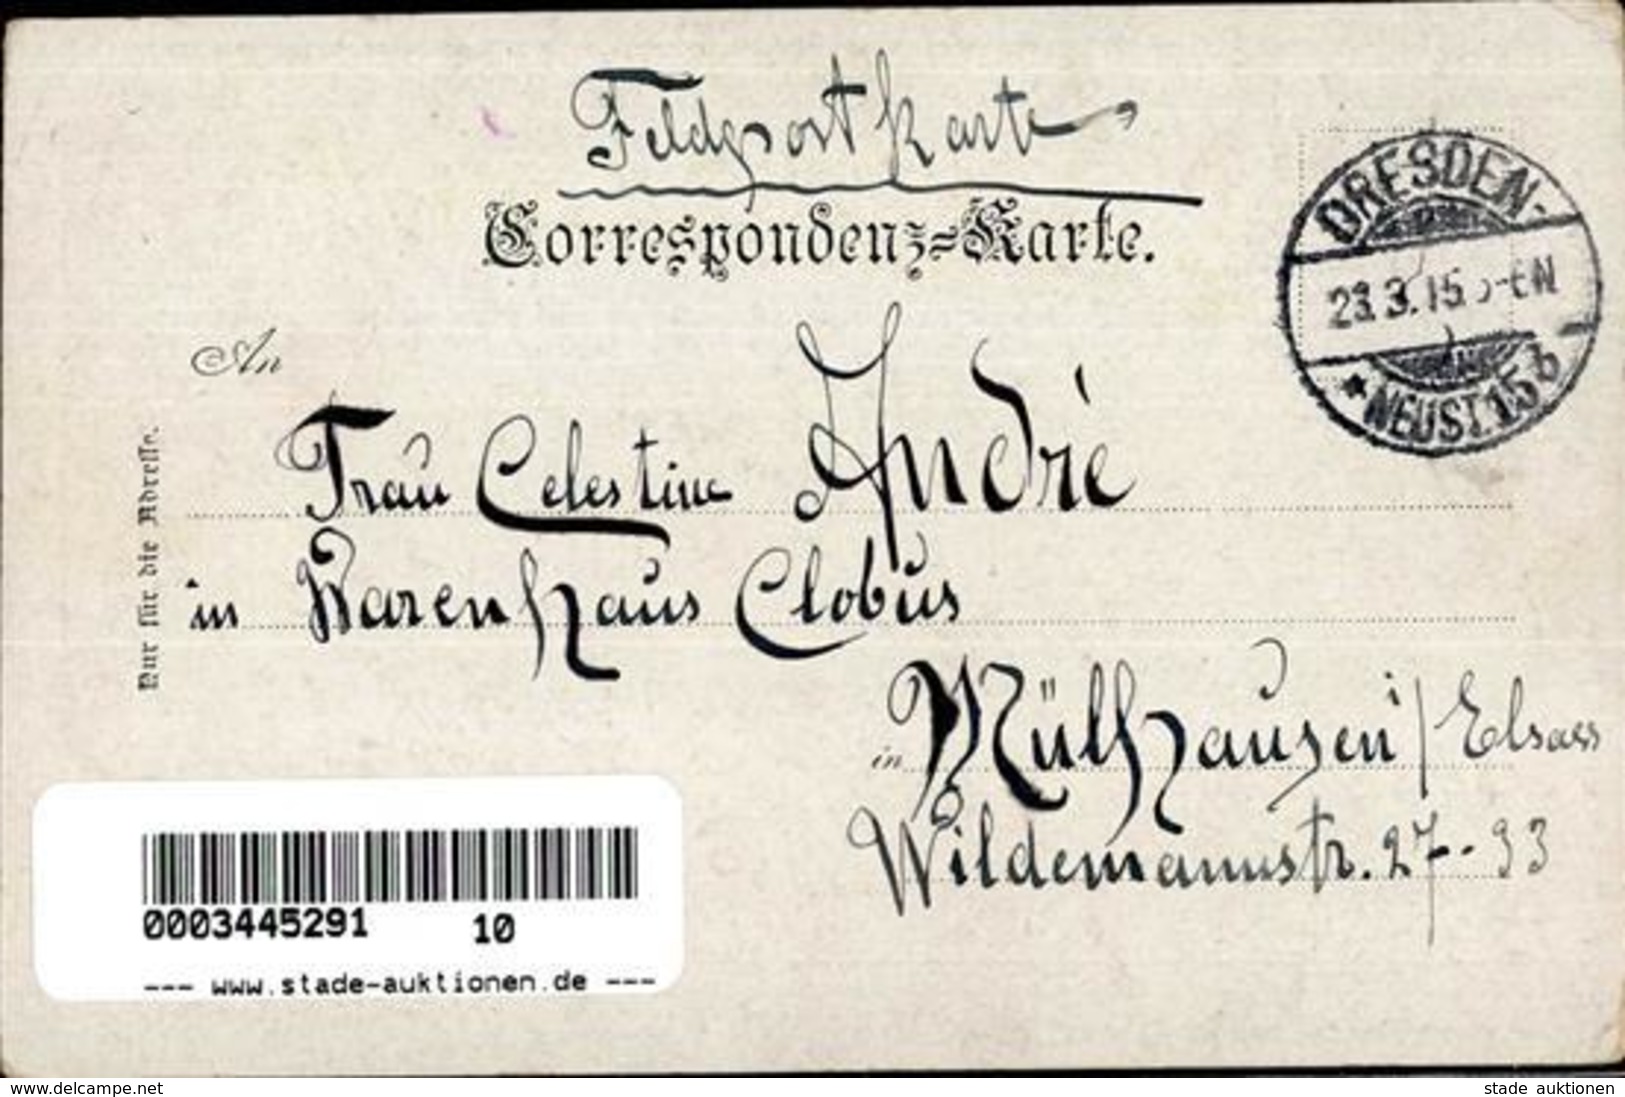 Feldpostkarte
Correspondenz-Karte.
DRESDEN-
23.3.15. -6N
* NEUST. 15 b
An
Frau Celestine André
in Warenhaus Clobus
in Mülhausen i/Elsass
Wildemannstr. 27-33
Nur für die Adresse.
0003445291 10
--- www.stade-auktionen.de ---
www.delcampe.net
stade auktionen